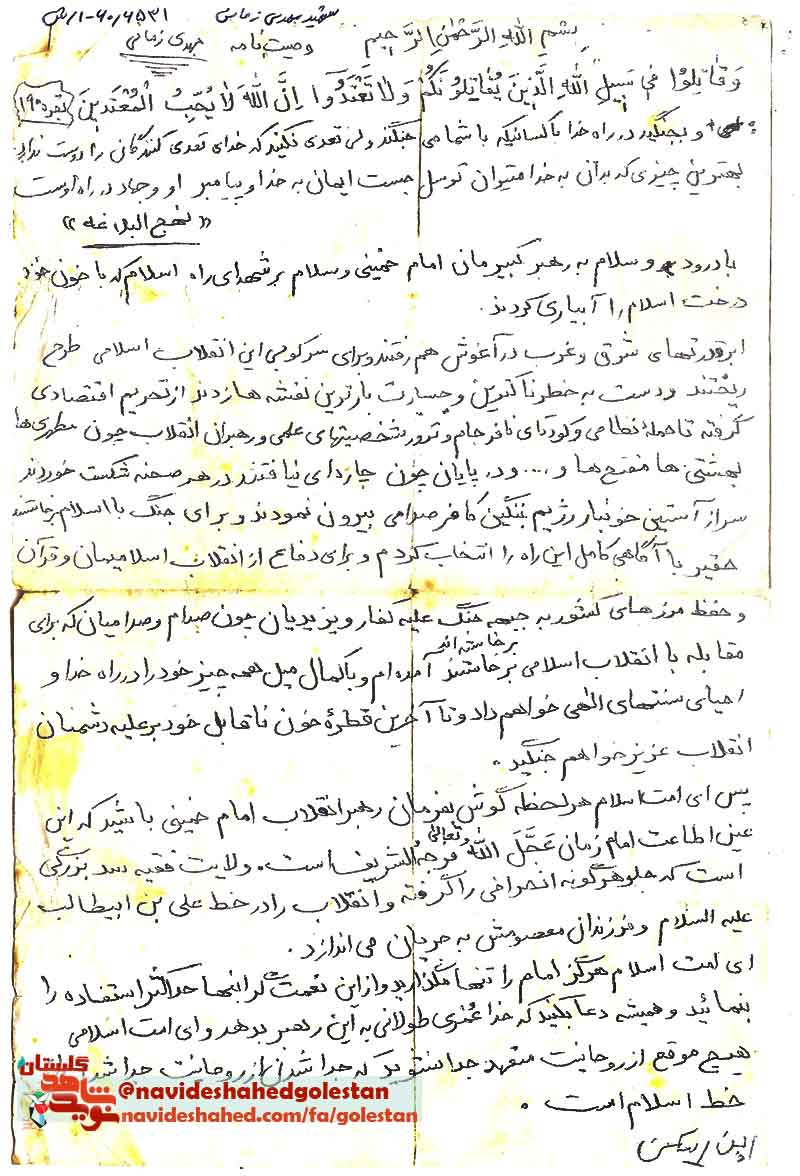 شهید مهدی زمانی ۱/۰۶۰/۶۵۳۱
بسم الله الرّحمن الرّحیم وصیت نامه مهدی زمانی
وَقاتِلوُا فی سَبیلِ اللهِ الَّذینَ یُقاتِلوُنَکُم وَلا تَعْتَدُوا اِنَّ اللهَ لا یُحِبُّ الْمُعْتَدینَ بقره ۱۹۰
و بجنگید در راه خدا با کسانیکه با شما می جنگند ولی تعدی نکنید که خدای تعدی کنندگان را دوست ندارد
بهترین چیزی که بدان به خدا میتوان توسل جست ایمان به خدا و پیامبر او و جهاد در راه اوست
«نهج البلاغه»
با درود و سلام به رهبر کبیرمان امام خمینی و سلام بر شهدای راه اسلام که با خون خود
درخت اسلام را آبیاری کردند.
ابرقدرتهای شرق و غرب در آغوش هم رفتند و برای سرکوبی این انقلاب اسلامی طرح
ریختند و دست به خطرناکترین و جسارت بارترین نقشه ها زدند از تحریم اقتصادی
گرفته تا حملهٔ نظامی و کودتای نافرجام و ترور شخصیتهای علمی و رهبران انقلاب چون مطهری ها
بهشتی ها مفتح ها و .... و در پایان چون چاره ای نیافتند در هر صحنه شکست خوردند
سر از آستین خونبار رژیم ننگین کافر صدامی بیرون نمودند و برای جنگ با اسلام برخاستند
حقیر با آگاهی کامل این راه را انتخاب کردم و برای دفاع از انقلاب اسلامیمان و قرآن
و حفظ مرزهای کشور به جبهه جنگ علیه کفار و یزیدیان چون صدام و صدامیان که برای
مقابله با انقلاب اسلامی برخاستند برخاسته اند آمده ام و با کمال میل همه چیز خود را در راه خدا و
احیای سنتهای الهی خواهم داد و تا آخرین قطرهٔ خون ناقابل خود بر علیه دشمنان
انقلاب عزیز خواهم جنگید.
پس ای امت اسلام هر لحظه گوش بفرمان رهبر انقلاب امام خمینی باشید که این
عین اطاعت امام زمان عَجَّلَ اللهُ تعالی فرجهُ الشریف است. ولایت فقیه سد بزرگی
است که جلو هرگونه انحرافی را گرفته و انقلاب را در خط علی بن ابیطالب
علیه السلام و فرزندان معصومش به جریان می اندازد.
ای امت اسلام هرگز امام را تنها مگذارید و از این نعمت گرانبها حداکثر استفاده را
بنمائید و همیشه دعا بکنید که خدا عُمری طولانی به این رهبر بدهد و ای امت اسلامی
هیچ موقع از روحانیت متعهد جدا نشوید که جدا شدن از روحانیت جدا شدن
خط اسلام است.
نوید شاهد گلستان
@navideshahedgolestan
navideshahed.com/fa/golestan